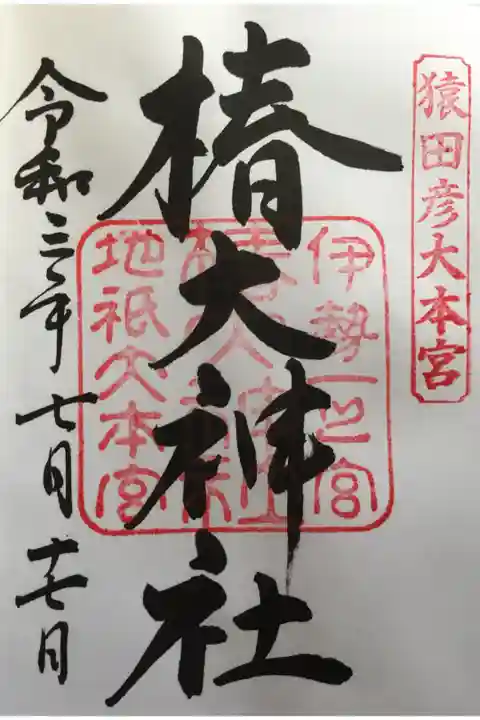 猿田彦大本宮
椿大神社
伊勢一之宮
椿大神社
地祇大本宮
令和三年七月十七日